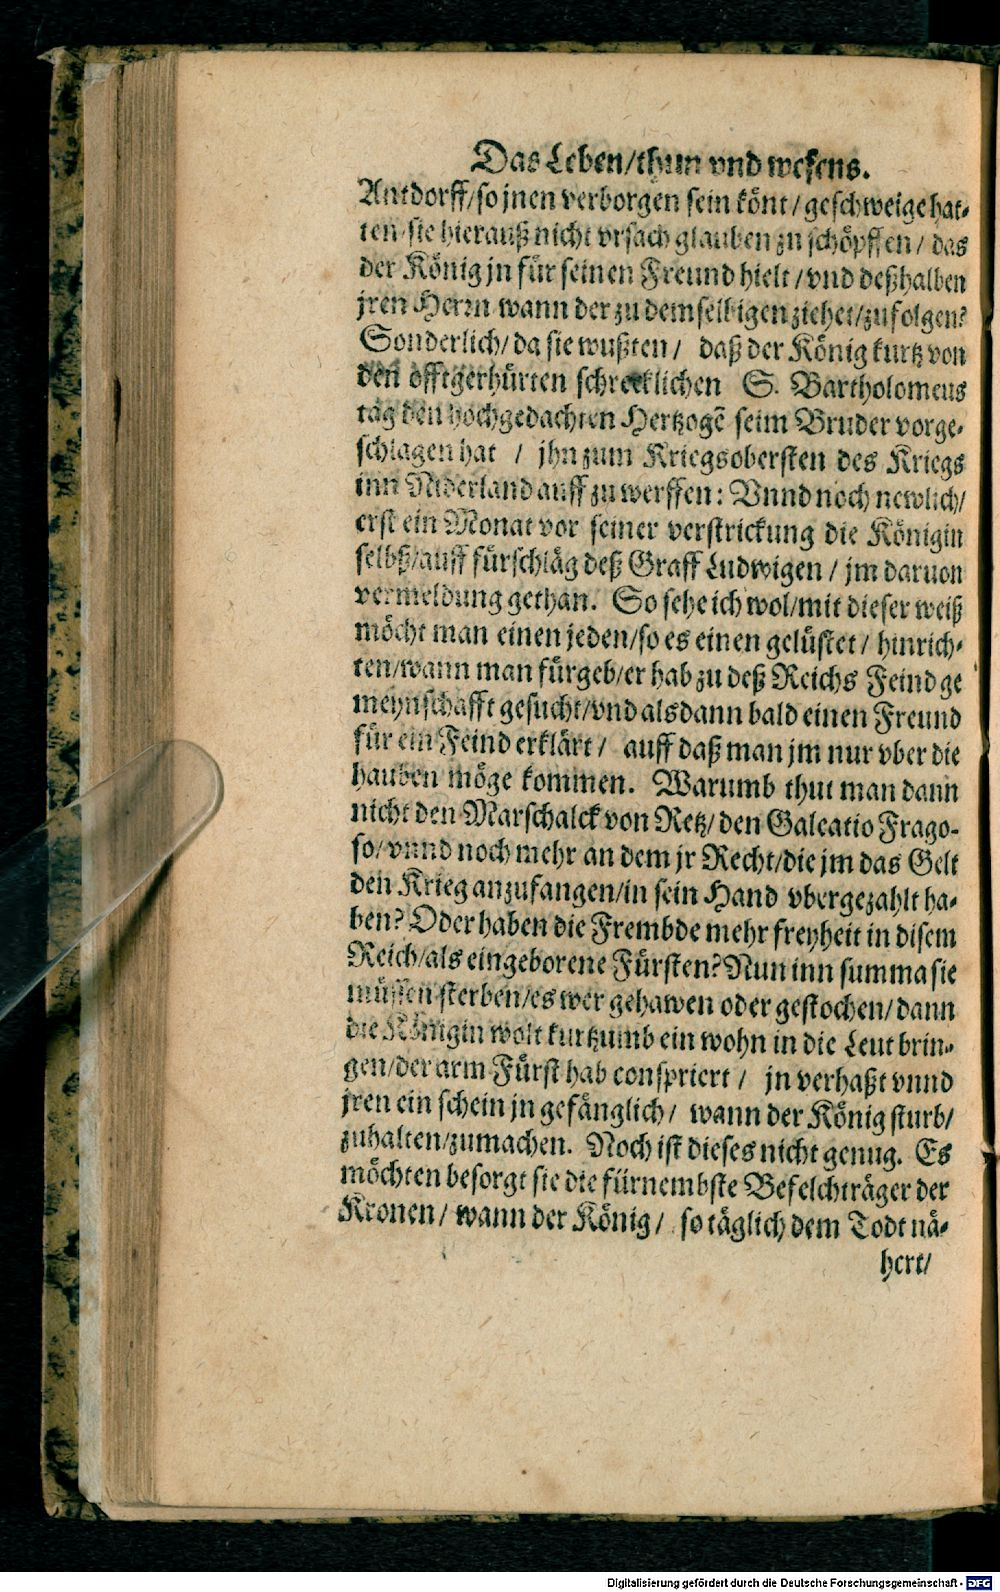 Das Leben/thun vnd wesens.
Antdorff/so jnen verborgen sein könt/geschweige hat-
ten sie hierauß nicht vrsach glauben zu schöpffen/das
der König jn für seinen Freund hielt/vnd deßhalben
jren Herrn wann der zu demselbigen ziehet/zufolgen?
Sonderlich/da sie wußten/ daß der König kurtz von
den offtgerhürten schrecklichen S. Bartholomeus
tag den hochgedachten Hertzogē seim Bruder vorge-
schlagen hat / jhn zum Kriegsobersten des Kriegs
inn Niderland auff zu werffen: Vnnd noch newlich/
erst ein Monat vor seiner verstrickung die Königin
selbst/auff fürschläg deß Graff Ludwigen/jm daruon
vermeldung gethan. So sehe ich wol/mit dieser weiß
möcht man einen jeden/so es einen gelüstet/hinrich-
ten/wann man fürgeb/er hab zu deß Reichs Feind ge
meynschafft gesucht/vnd alsdann bald einen Freund
für ein Feind erklärt/ auff daß man jm nur vber die
hauben möge kommen. Warumb thut man dann
nicht den Marschalck von Retz/den Galeatio Frago-
so/vnnd noch mehr an dem jr Recht/die jm das Gelt
den Krieg anzufangen/in sein Hand vbergezahlt ha-
ben? Oder haben die Frembde mehr freyheit in disem
Reich/als eingeborene Fürsten? Nun inn summa sie
müssen sterben/es wer gehawen oder gestochen/dann
die Königin wolt kurtzumb ein wohn in die Leut brin-
gen/der arm Fürst hab conspriert/ jn verhaßt vnnd
jren ein schein jn gefänglich/ wann der König sturb/
zuhalten/zumachen. Noch ist dieses nicht genug. Es
möchten besorgt sie die fürnembste Befelchträger der
Kronen/wann der König/ so täglich dem Todt nä-
hert/
Digitalisierung gefördert durch die Deutsche Forschungsgemeinschaft - DFG